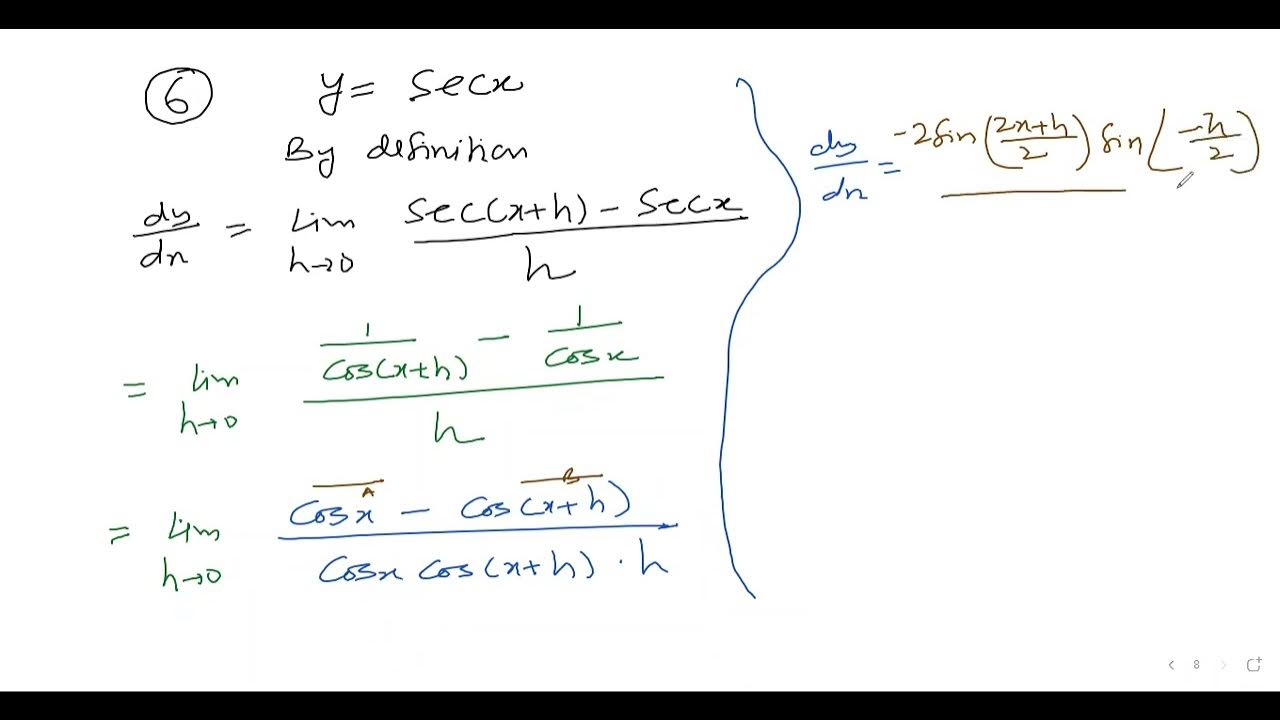 ⑥ y = secx
By definition
dy/dx = lim h→0 (sec(x+h) − secx)/h
= lim h→0 (1/cos(x+h) − 1/cosx)/h
A B
= lim h→0 (cosx − cos(x+h))/(cosx cos(x+h) · h)
dy/dx = -2 sin((2x+h)/2) sin(-h/2)
8